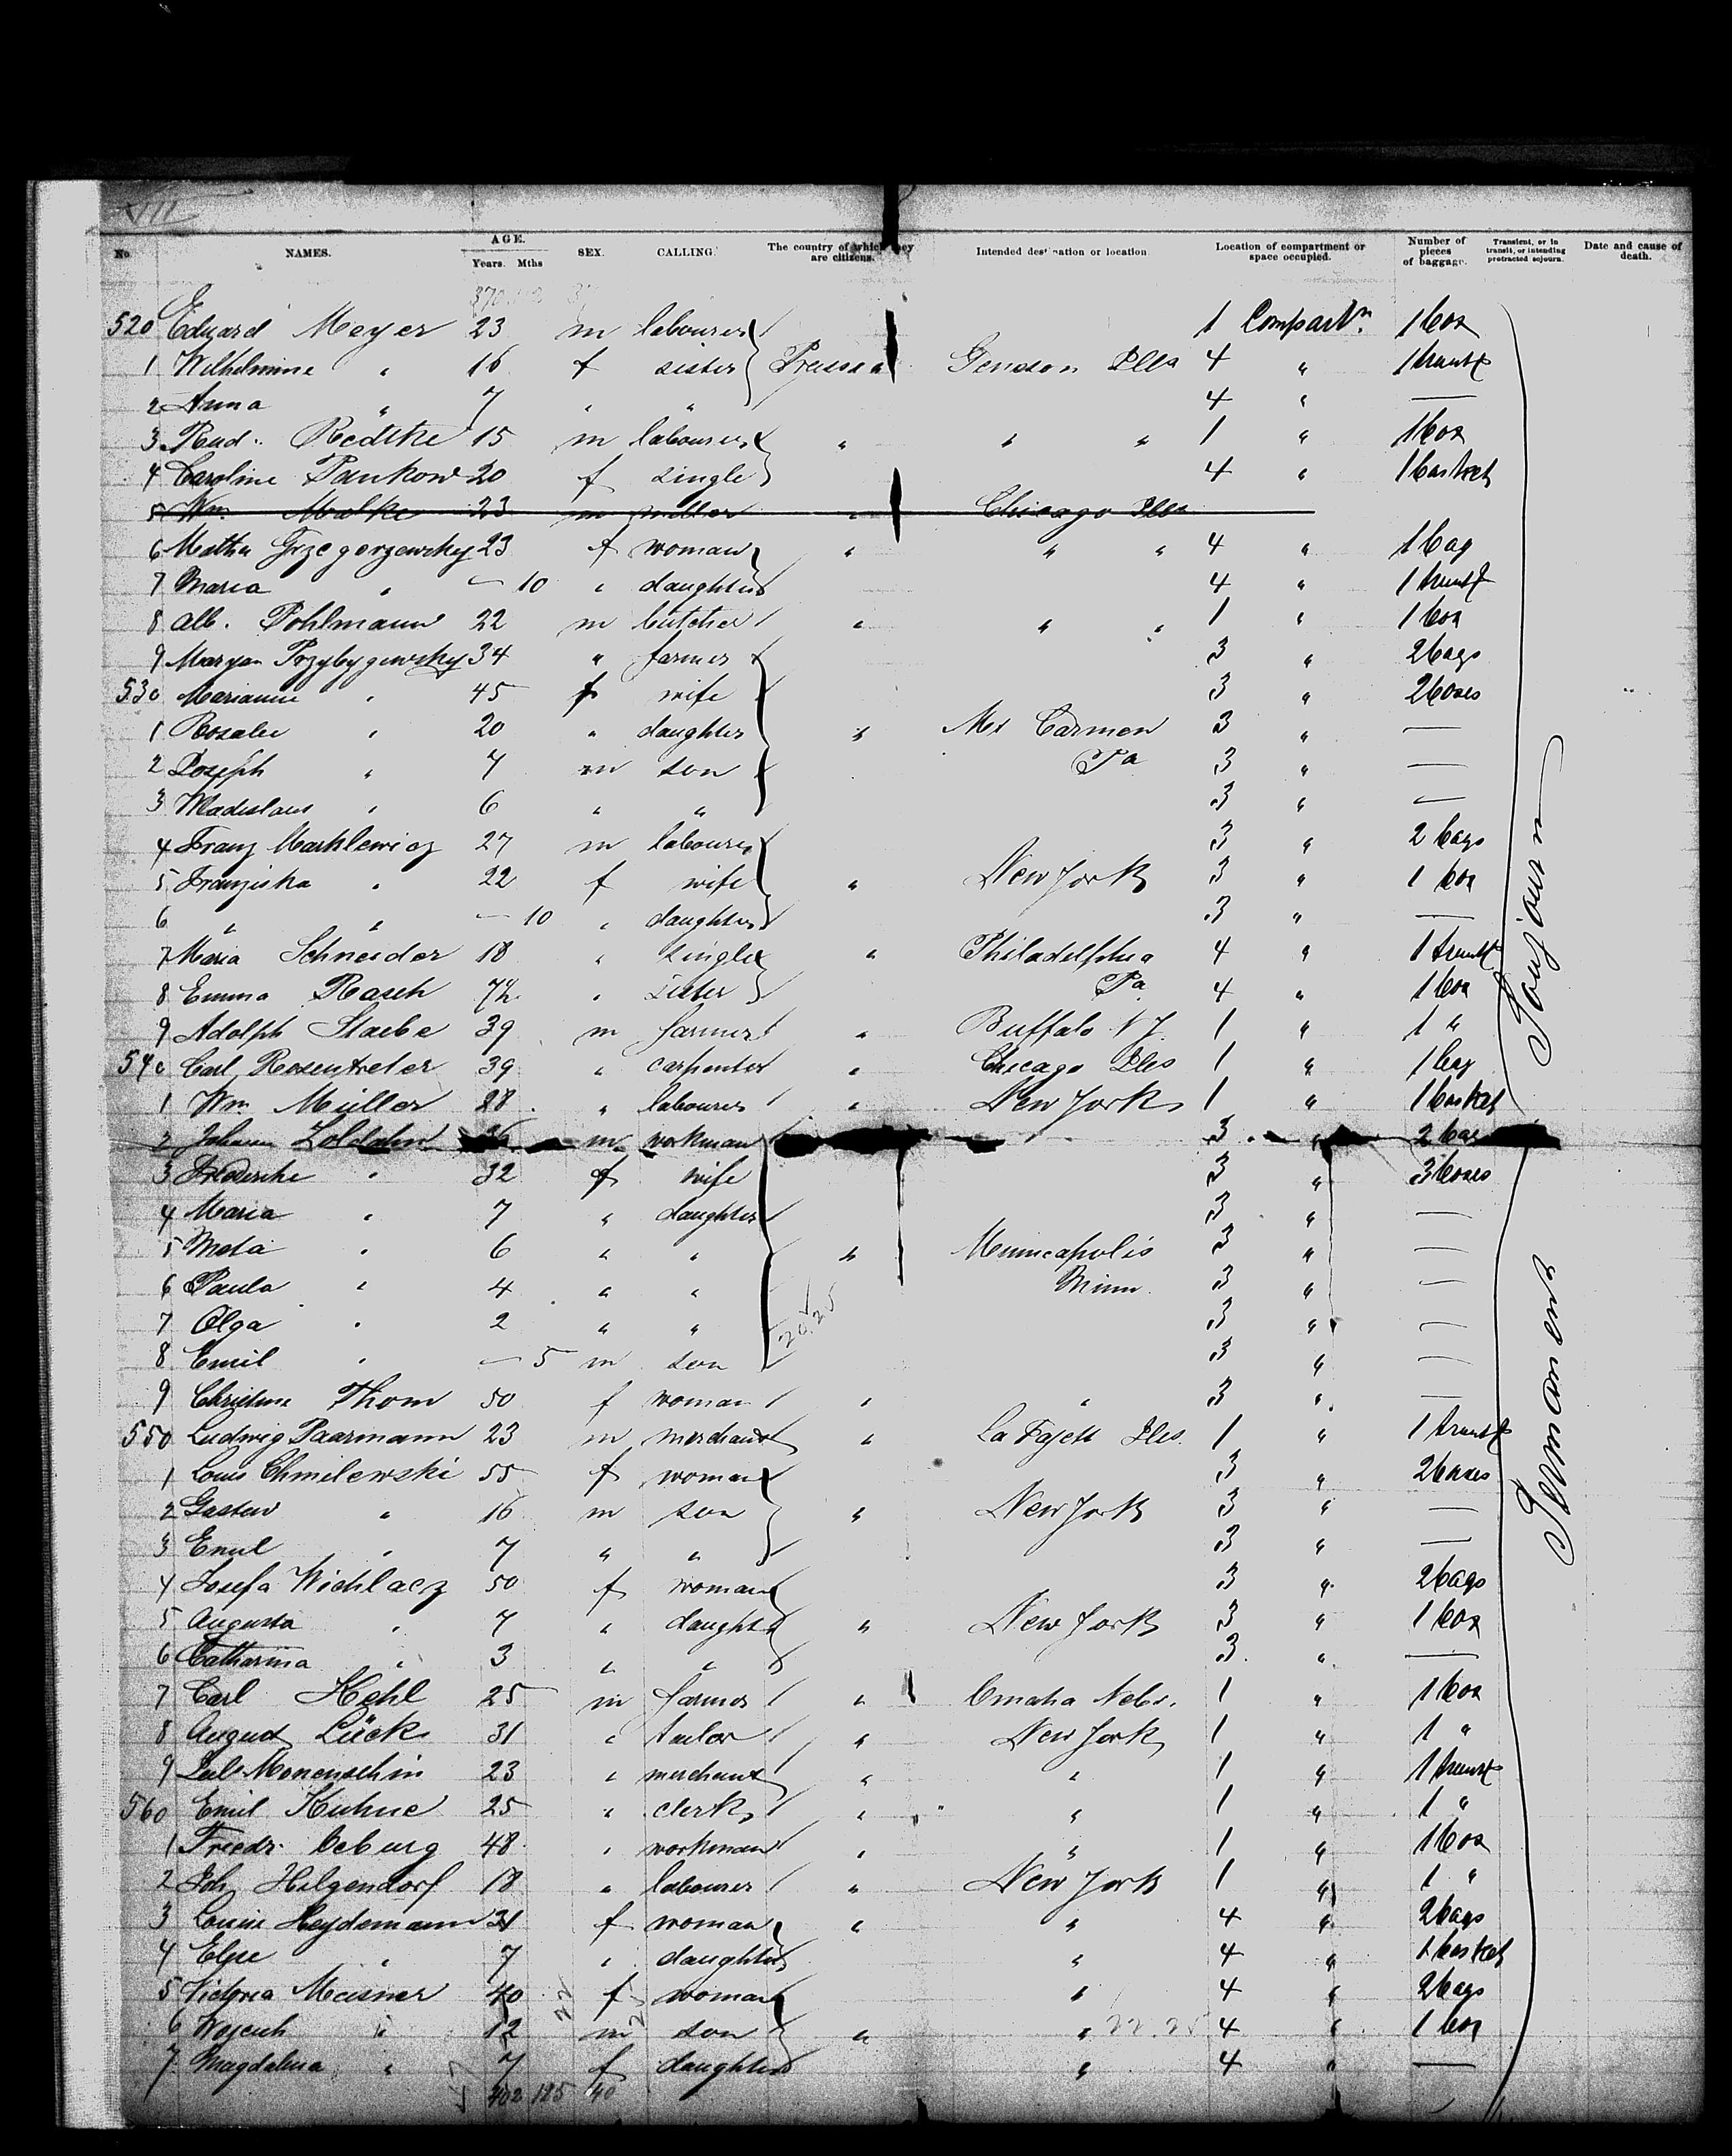 VIII
No NAMES. AGE. Years. Mths SEX. CALLING. The country of which they are citizens. Intended destination or location Location of compartment or space occupied. Number of pieces of baggage. Transient, or in transit, or intending protracted sojourn. Date and cause of death.
520 Eduard Meyer 23 m labourer 1 Compartm. 1 box
1 Wilhelmine " 16 f sister Prussia Ills 4 " 1 trunk
2 Anna " 7 " " 4 " —
3 Rud. Redtke 15 m labourer " " " 1 " 1 box
4 Caroline Pankow 20 f single 4 " 1 basket
5 Wm. Malke 23 m miller " Chicago Ills
6 Martha Grzegorzewsky 23 f woman " " " 4 " 1 bag
7 Maria " — 10 " daughter 4 " 1 trunk
8 Alb. Pohlmann 22 m butcher " " " 1 " 1 box
9 Maryan 34 " farmer 3 " 2 bags
530 Marianne " 45 f wife 3 " 2 boxes
1 Rosalie " 20 " daughter " Mt Carmen 3 " —
2 Joseph " 7 m son Pa 3 " —
3 Wladislaus " 6 " " 3 " —
4 Franz Marklewicz 27 m labourer 3 " 2 bags
5 Franziska " 22 f wife " New York 3 " 1 box
6 " " — 10 " daughter 3 " —
7 Maria Schneider 18 " single " Philadelphia 4 " 1 trunk
8 Emma Rasch 7½ " sister Pa 4 " 1 box
9 Adolph Staebe 39 m farmer " Buffalo N Y. 1 " 1 "
540 Carl Rosentreter 39 " carpenter " Chicago Ills 1 " 1 bag
1 Wm. Müller 28 " labourer " New York 1 " 1 basket
2 Johann m workman 3 " 2
3 Frederike " 32 f wife 3 " 3 boxes
4 Maria " 7 " daughter 3 " —
5 Meta " 6 " " " Minneapolis 3 " —
6 Paula " 4 " " Minn. 3 " —
7 Olga " 2 " " 3 " —
8 Emil " — 5 m son 3 " —
9 Christine Thom 50 f woman " " 3 " —
550 Ludwig Paarmann 23 m merchant " La Fajett Ills. 1 " 1 trunk
1 Louis Chmilewski 55 f woman 3 " 2 boxes
2 Gustav " 16 m son " New York 3 " —
3 Emil " 7 " " 3 " —
4 Josefa Wichlacz 50 f woman 3 " 2 bags
5 Augusta " 7 " daughter " New York 3 " 1 box
6 Catharina " 3 " " 3 " —
7 Carl Kehl 25 m farmer " Omaha Nebr. 1 " 1 box
8 August Lück 31 " tailor " New York 1 " 1 "
9 23 " merchant " " 1 " 1 trunk
560 Emil Kuhne 25 " clerk " " 1 " 1 "
1 Friedr. 48 " workman " " 1 " 1 box
2 Joh. Hilgendorf 18 " labourer " New York 1 " 1 "
3 Louise Heydemann f woman " " 4 " 2 bags
4 Else " 7 " daughter " 4 " 1 basket
5 Victoria Meisner 40 f woman " 4 " 2 bags
6 Wojcech " 12 m son " " 4 " 1 box
7 Magdalena " 7 f daughter " 4 " —
402 185 40
Permanent Soujourn